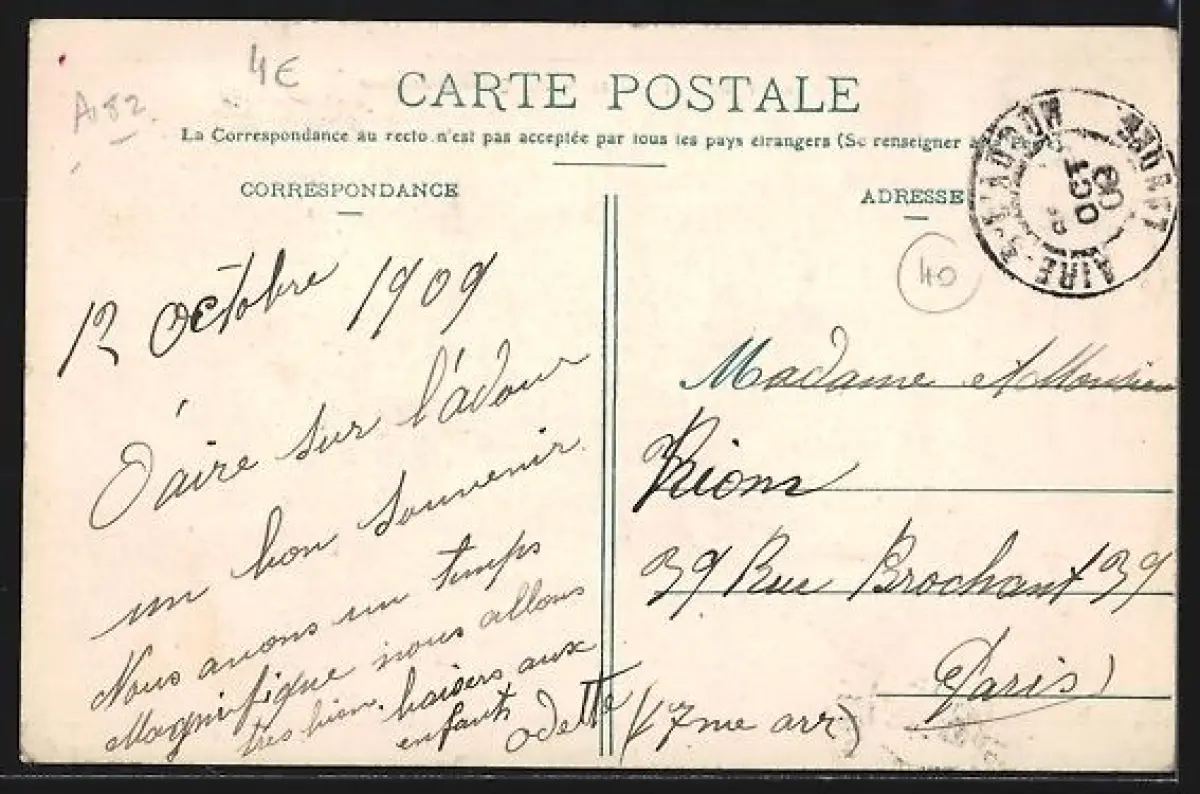 4E
A182
CARTE POSTALE
La Correspondance au recto n'est pas acceptée par tous les pays étrangers (Se renseigner à
CORRESPONDANCE
ADRESSE
AIRE-S-L'ADOUR
OCT
09
40
12 Octobre 1909
D'aire sur l'adour
un bon souvenir.
Nous avons un temps
Magnifique nous allons
très bien. baisers aux
enfants
Odette
Madame et Monsieur
Rions
39 Rue Brochant 39
Paris
(17me arr)